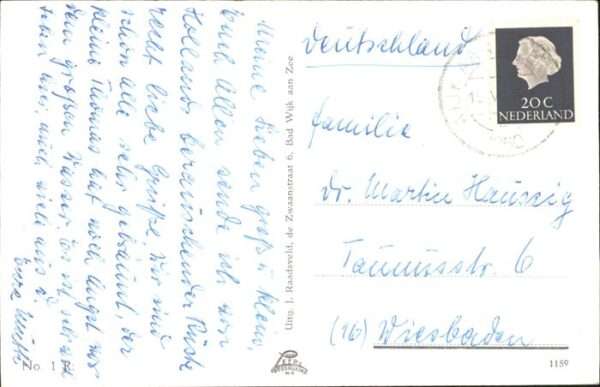 Meine Lieben groß u. klein,
Euch Allen sende ich von
Hollands berauschender Küste
recht liebe Grüße. Wir sind
schon alle sehr gebräunt, der
kleine Thomas hat noch Angst vor
dem großen Wasser. Es ist
Eure
No. 1
Uitg. J. Raadsveld, de Zwaanstraat 6, Bad Wijk aan Zee
Deutschland
20 C
NEDERLAND
Familie
Dr. Martin Haussig
Taunusstr. 6
(16) Wiesbaden
1159